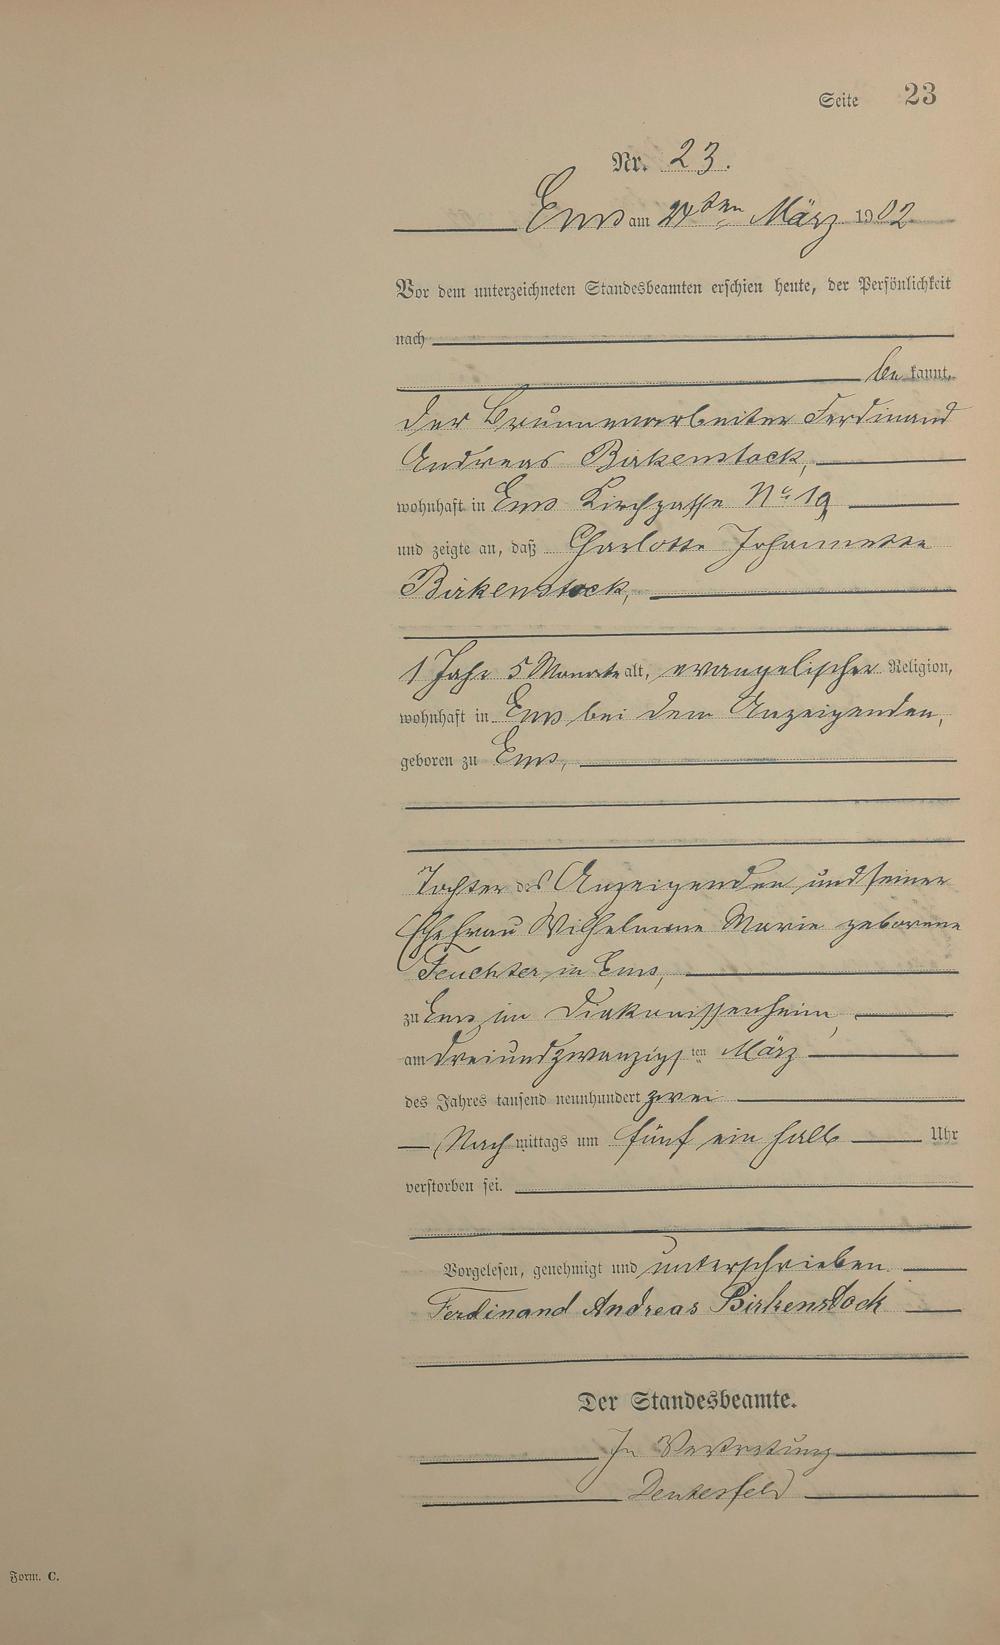 Seite 23
Nr. 23.
Ems am 24ten März 1902
Vor dem unterzeichneten Standesbeamten erschien heute, der Persönlichkeit
nach
be kannt,
der Brunnenarbeiter Ferdinand
Andreas Birkenstock,
wohnhaft in Ems Kirchgasse No 19
und zeigte an, daß Charlotte Johannette
Birkenstock,
1 Jahr 5 Monate alt, evangelischer Religion,
wohnhaft in Ems bei dem Anzeigenden,
geboren zu Ems,
Tochter des Anzeigenden und seiner
Ehefrau Wilhelmine Marie geborene
Feuchter in Ems,
zu Ems im Diakonissenheim,
am dreiundzwanzigsten März
des Jahres tausend neunhundert zwei
Nach mittags um fünf ein halb Uhr
verstorben sei.
Vorgelesen, genehmigt und unterschrieben
Ferdinand Andreas Birkenstock
Der Standesbeamte.
In Vertretung
Form. C.